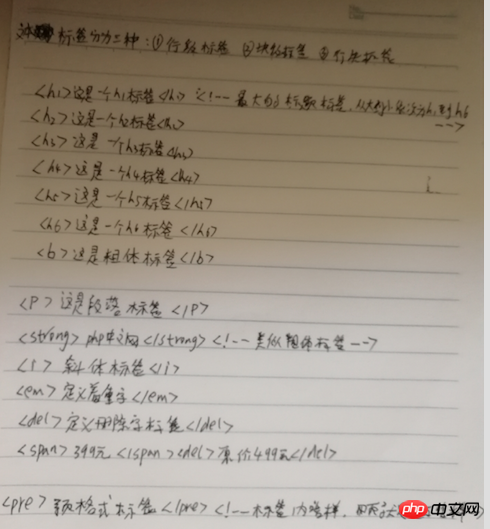 标签分为三种：①行级标签 ②块级标签 ③行块标签
<h1>这是一个h1标签<h1> <!-- 最大的标题标签，从大到小依次为h1到h6 -->
<h2>这是一个h2标签<h2>
<h3>这是一个h3标签<h3>
<h4>这是一个h4标签<h4>
<h5>这是一个h5标签</h5>
<h6>这是一个h6标签</h6>
<b>这是粗体标签</b>
<P>这是段落标签</P>
<strong>php中文网</strong> <!-- 类似粗体标签 -->
<i>斜体标签</i>
<em>定义着重字</em>
<del>定义删除字标签</del>
<span>399元</span><del>原价499元</del>
<pre>预格式标签</pre> <!-- 标签内啥样，
php 中文网